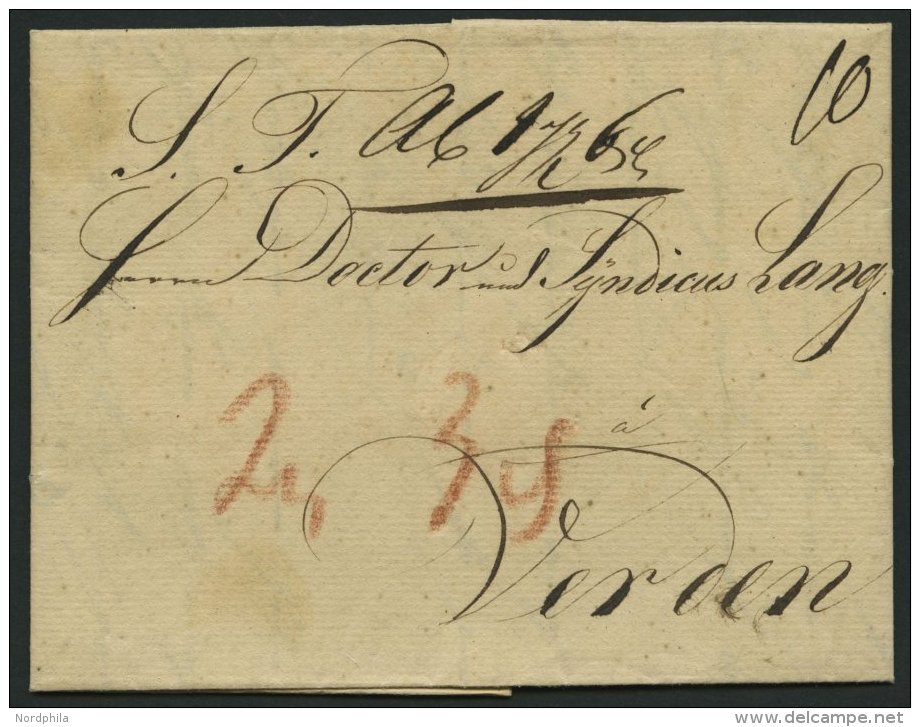 S. T.
10
Herrn Doctor und Syndicus Lang.
à
Verden
Nordphila
delcampe.net